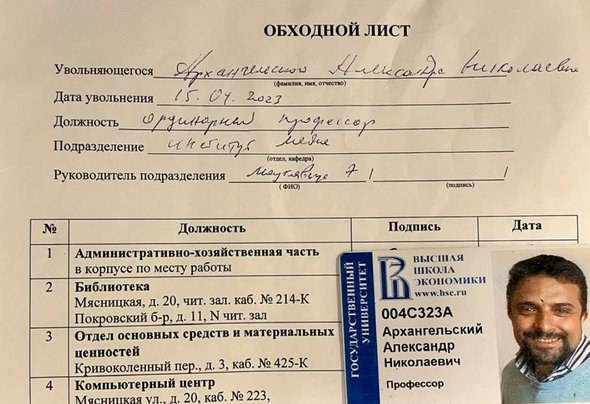 ОБХОДНОЙ ЛИСТ
Увольняющегося Архангельского Александра Николаевича
(фамилия, имя, отчество)
Дата увольнения 15.04.2023
Должность ординарный профессор
Подразделение институт медиа
(отдел, кафедра)
Руководитель подразделения / /
( ФИО) (подпись)
№ Должность Подпись Дата
1 Административно-хозяйственная часть
в корпусе по месту работы
2 Библиотека
Мясницкая, д. 20, чит. зал. каб. № 214-К
Покровский б-р, д. 11, N чит. зал
3 Отдел основных средств и материальных
ценностей
Кривоколенный пер., д. 3, каб. № 425-К
4 Компьютерный центр
Мясницкая ул., д. 20, каб. № 223,
ГОСУДАРСТВЕННЫЙ
УНИВЕРСИТЕТ
ВЫСШАЯ
ШКОЛА
ЭКОНОМИКИ
www.hse.ru
004C323A
Архангельский
Александр
Николаевич
Профессор